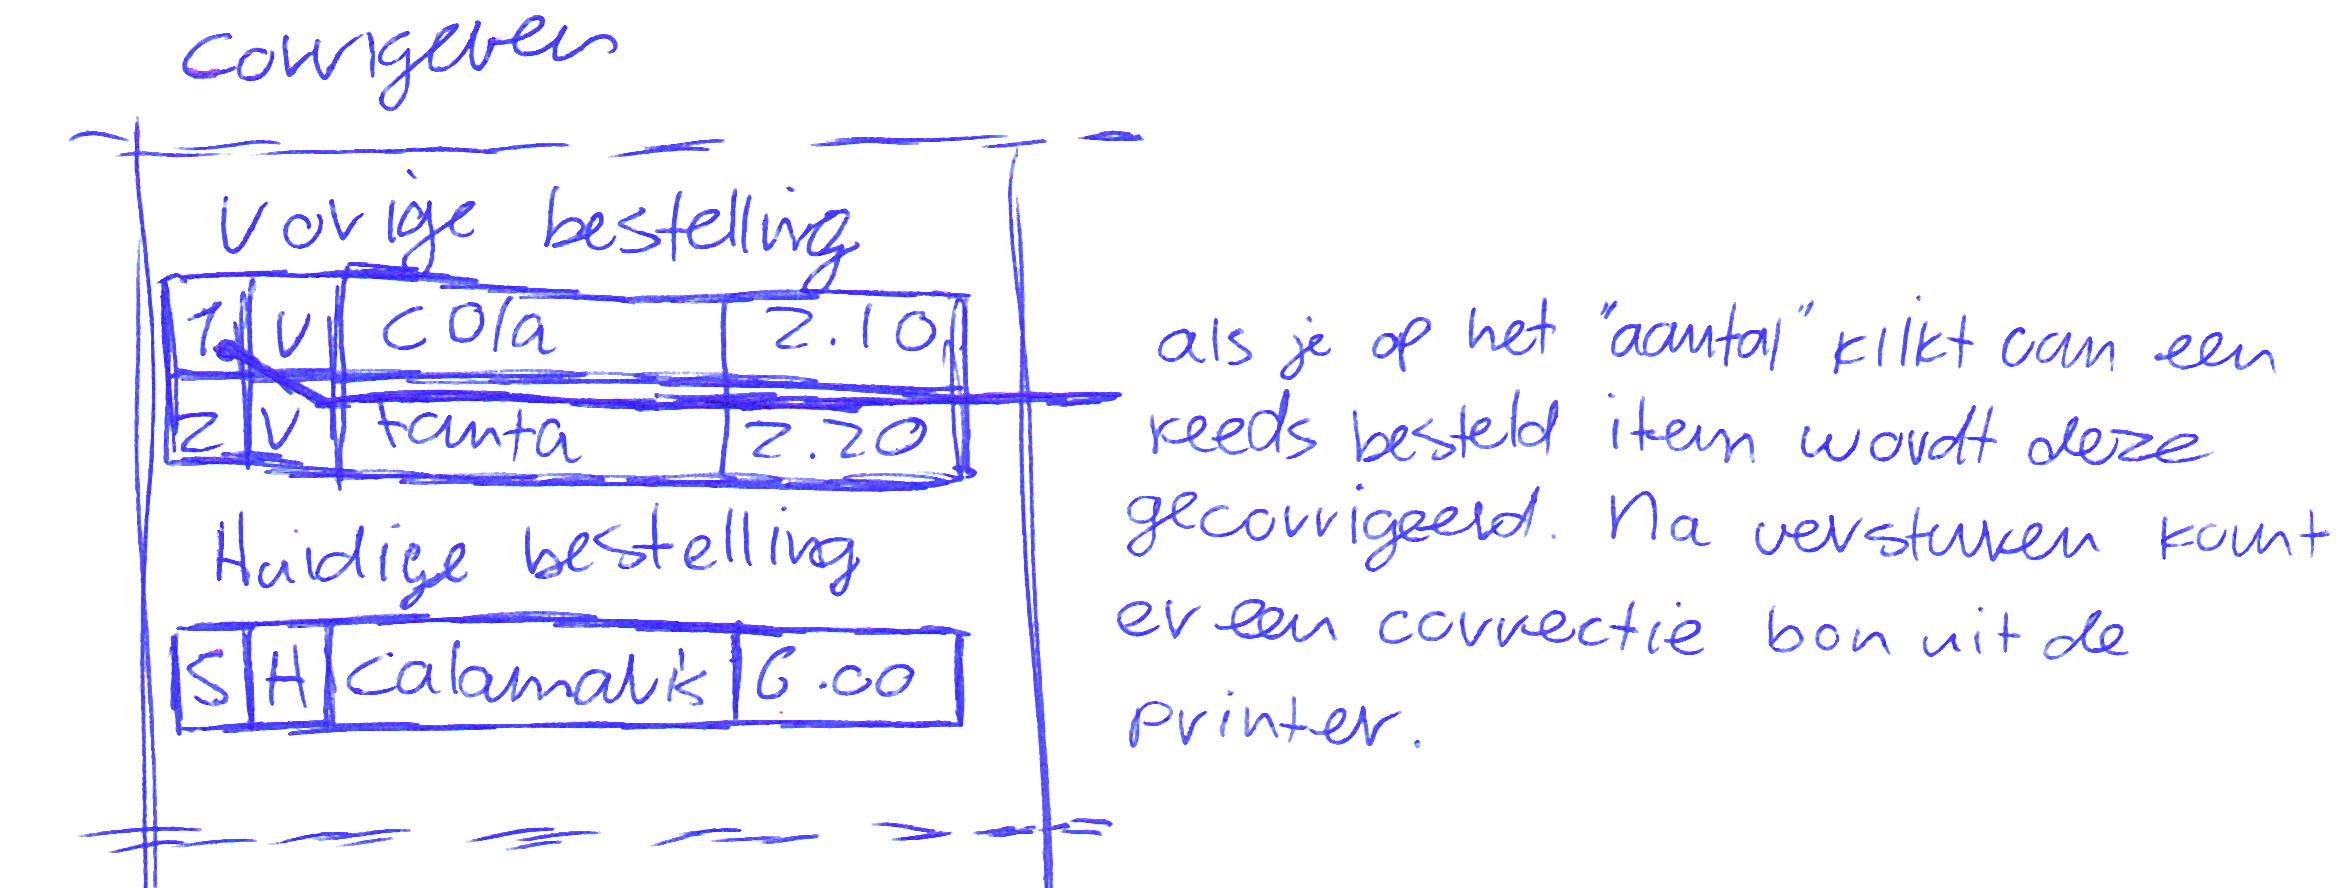 Corrigeren
Vorige bestelling
1 V Cola 2.10
2 V fanta 2.20
Huidige bestelling
5 H Calamaris 6.00
als je op het "aantal" klikt van een
reeds besteld item wordt deze
gecorrigeerd. Na versturen komt
er een correctie bon uit de
printer.